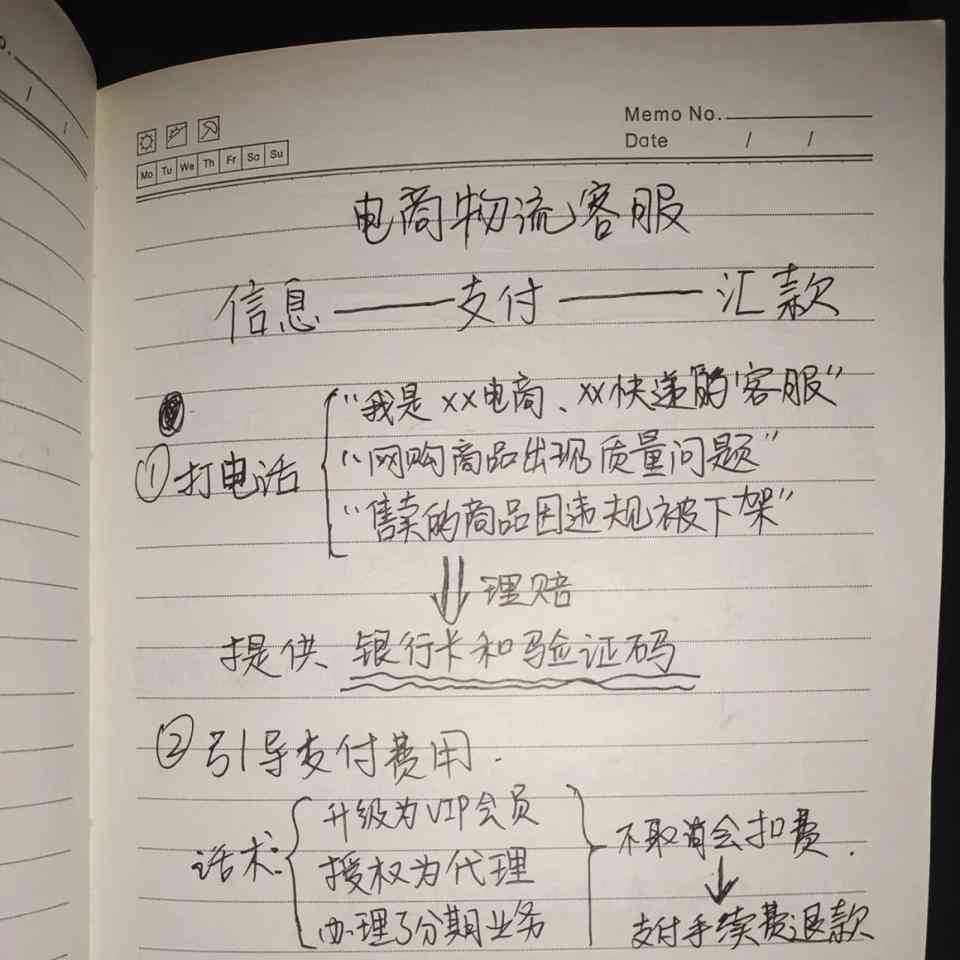 Memo No.
Date / /
Mo Tu We Th Fr Sa Su
电商物流客服
信息——支付——汇款
①打电话
“我是××电商、××快递的客服”
“网购商品出现质量问题”
“售卖的商品因违规被下架”
理赔
提供银行卡和验证码
②引导支付费用.
话术:
升级为VIP会员
授权为代理
办理了分期业务
不取消会扣费.
支付手续费退款